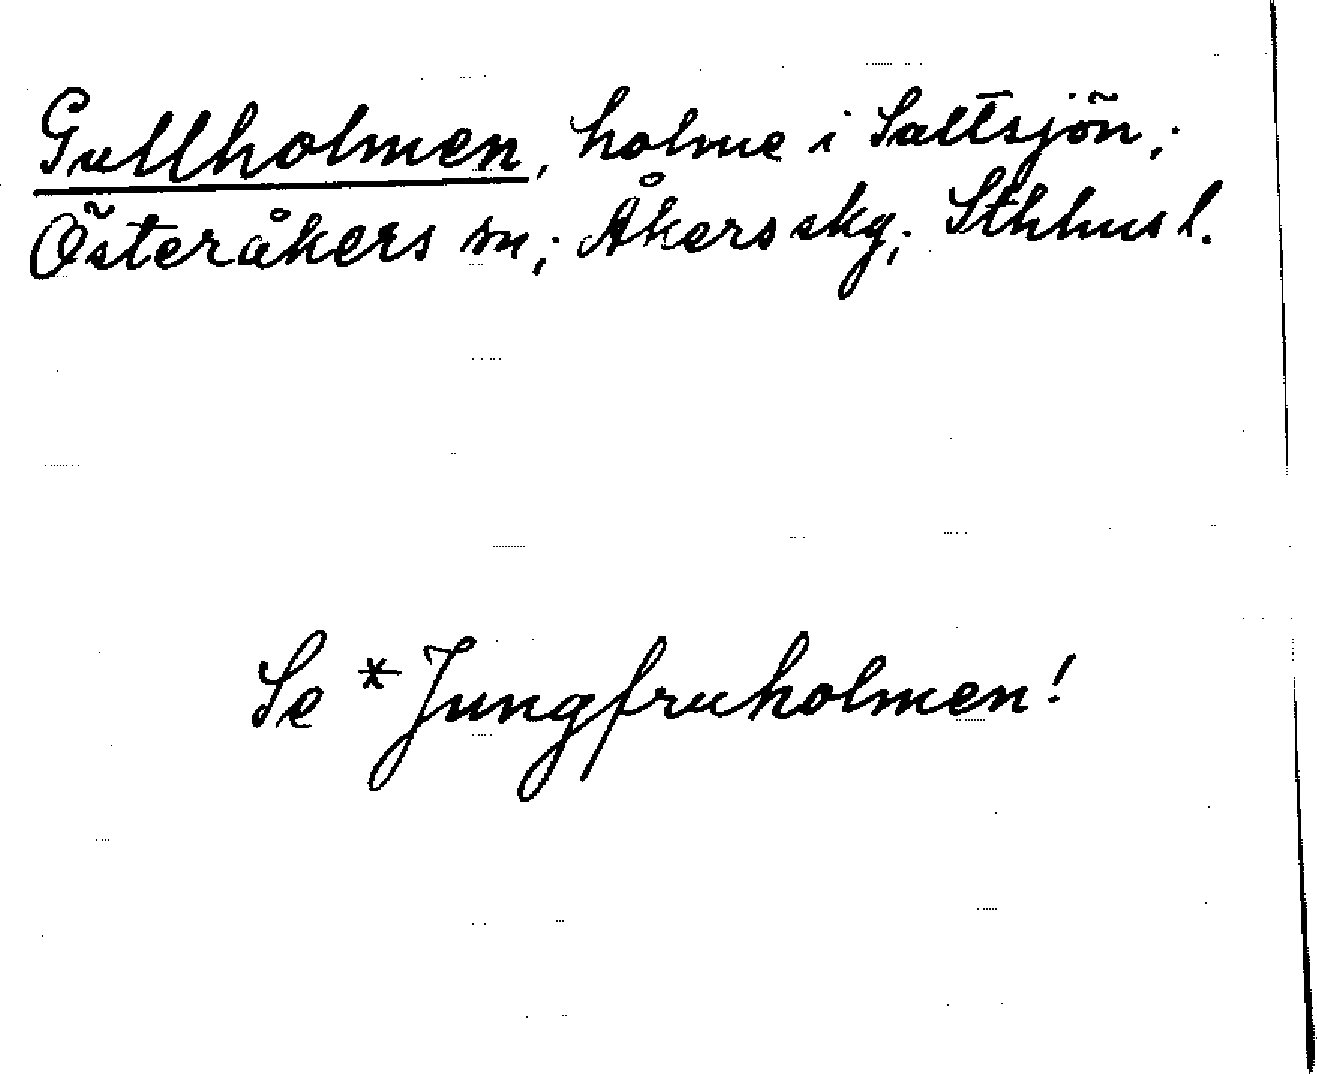 Gullholmen, holme i Saltsjön;
Österåkers sn; Åkers skg; Sthlms l.
Se *Jungfruholmen!